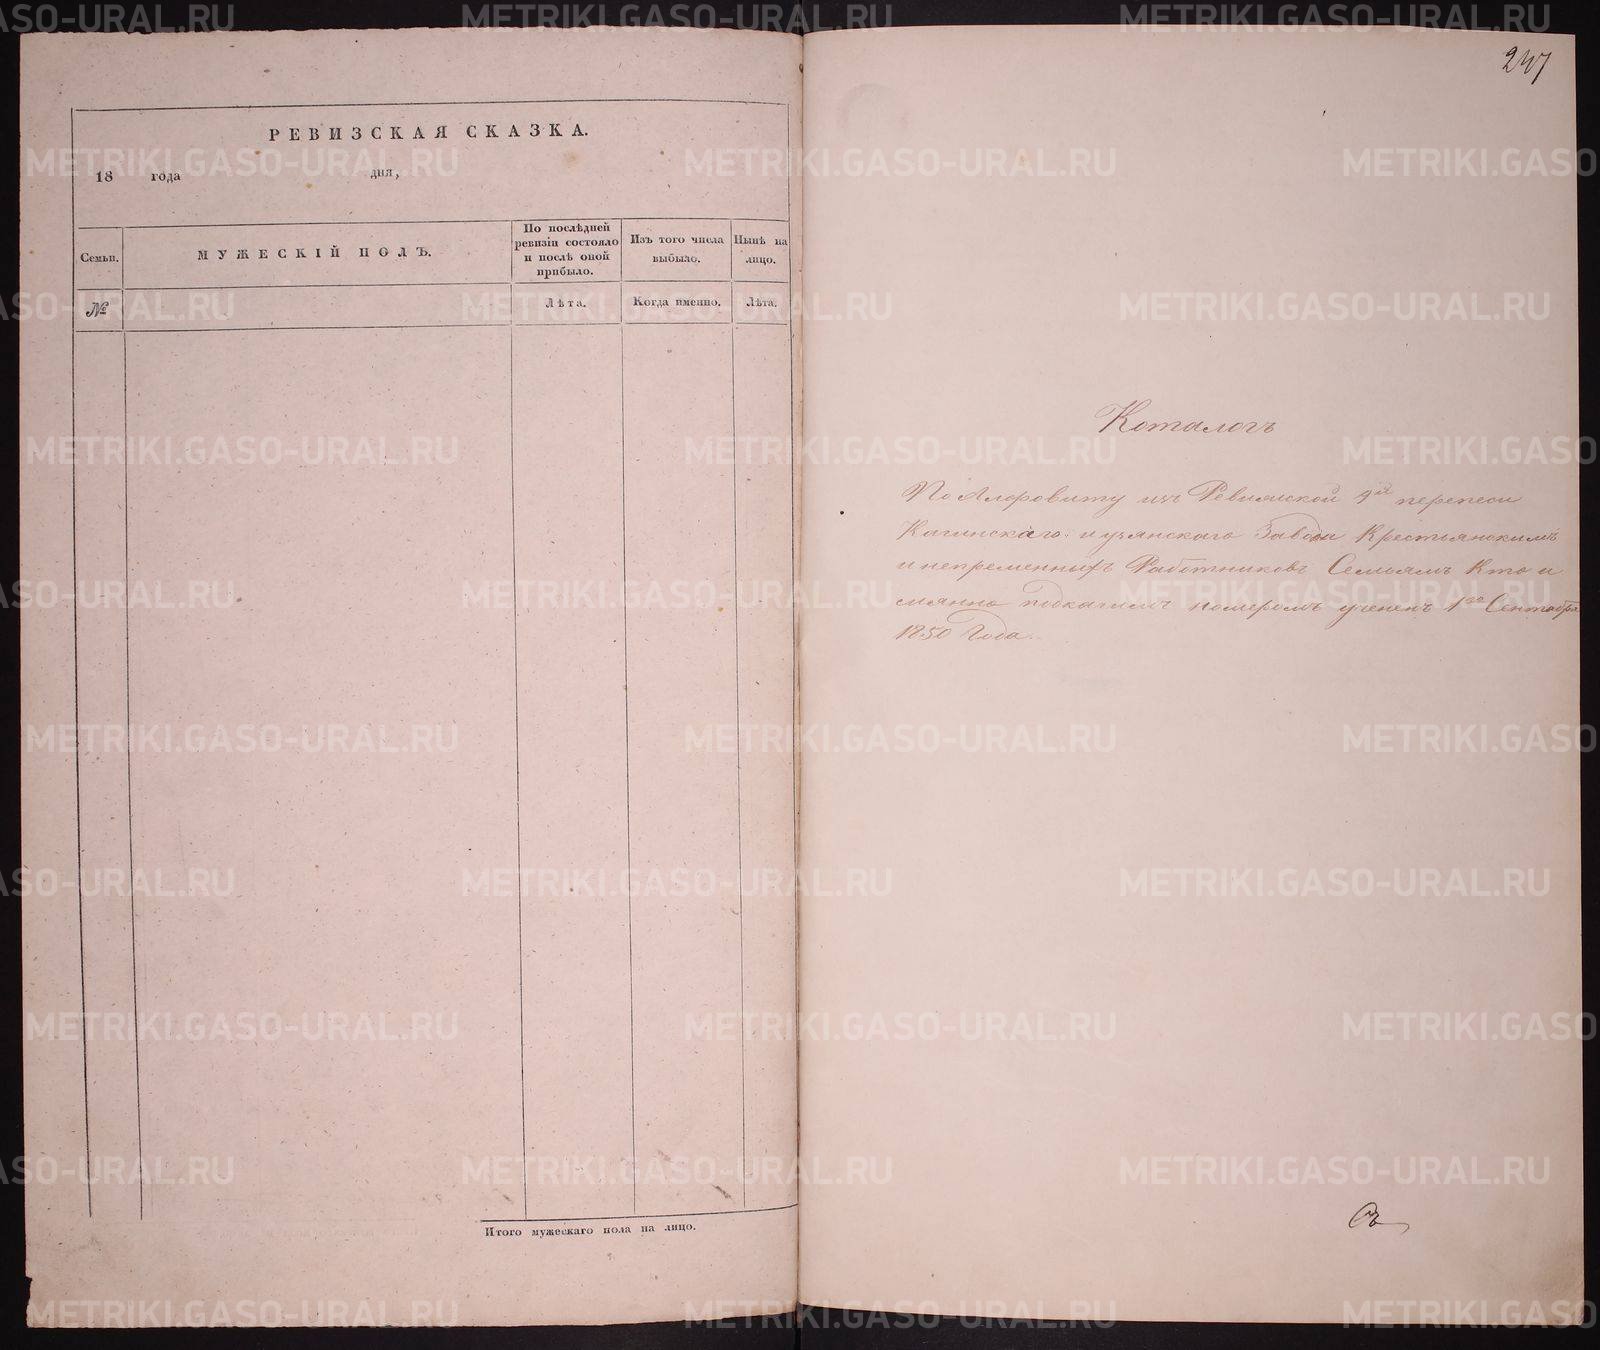 РЕВИЗСКАЯ СКАЗКА.
18 года дня,
Семьи.
МУЖЕСКІЙ ПОЛЪ.
По послѣдней ревизіи состояло и послѣ оной прибыло.
Изъ того числа выбыло.
Нынѣ на лицо.
№
Лѣта.
Когда именно.
Лѣта.
Итого мужескаго пола на лицо.
247
Каталогъ
По Алфовиту изъ Ревижской 9й переписи
Кагинскаго и узянскаго Завода Крестьянскимъ
и непременныхъ Работниковъ Семьямъ Кто и
мянно подкакимъ номеромъ учененъ 1го Сентября
1850 Года.
METRIKI.GASO-URAL.RU